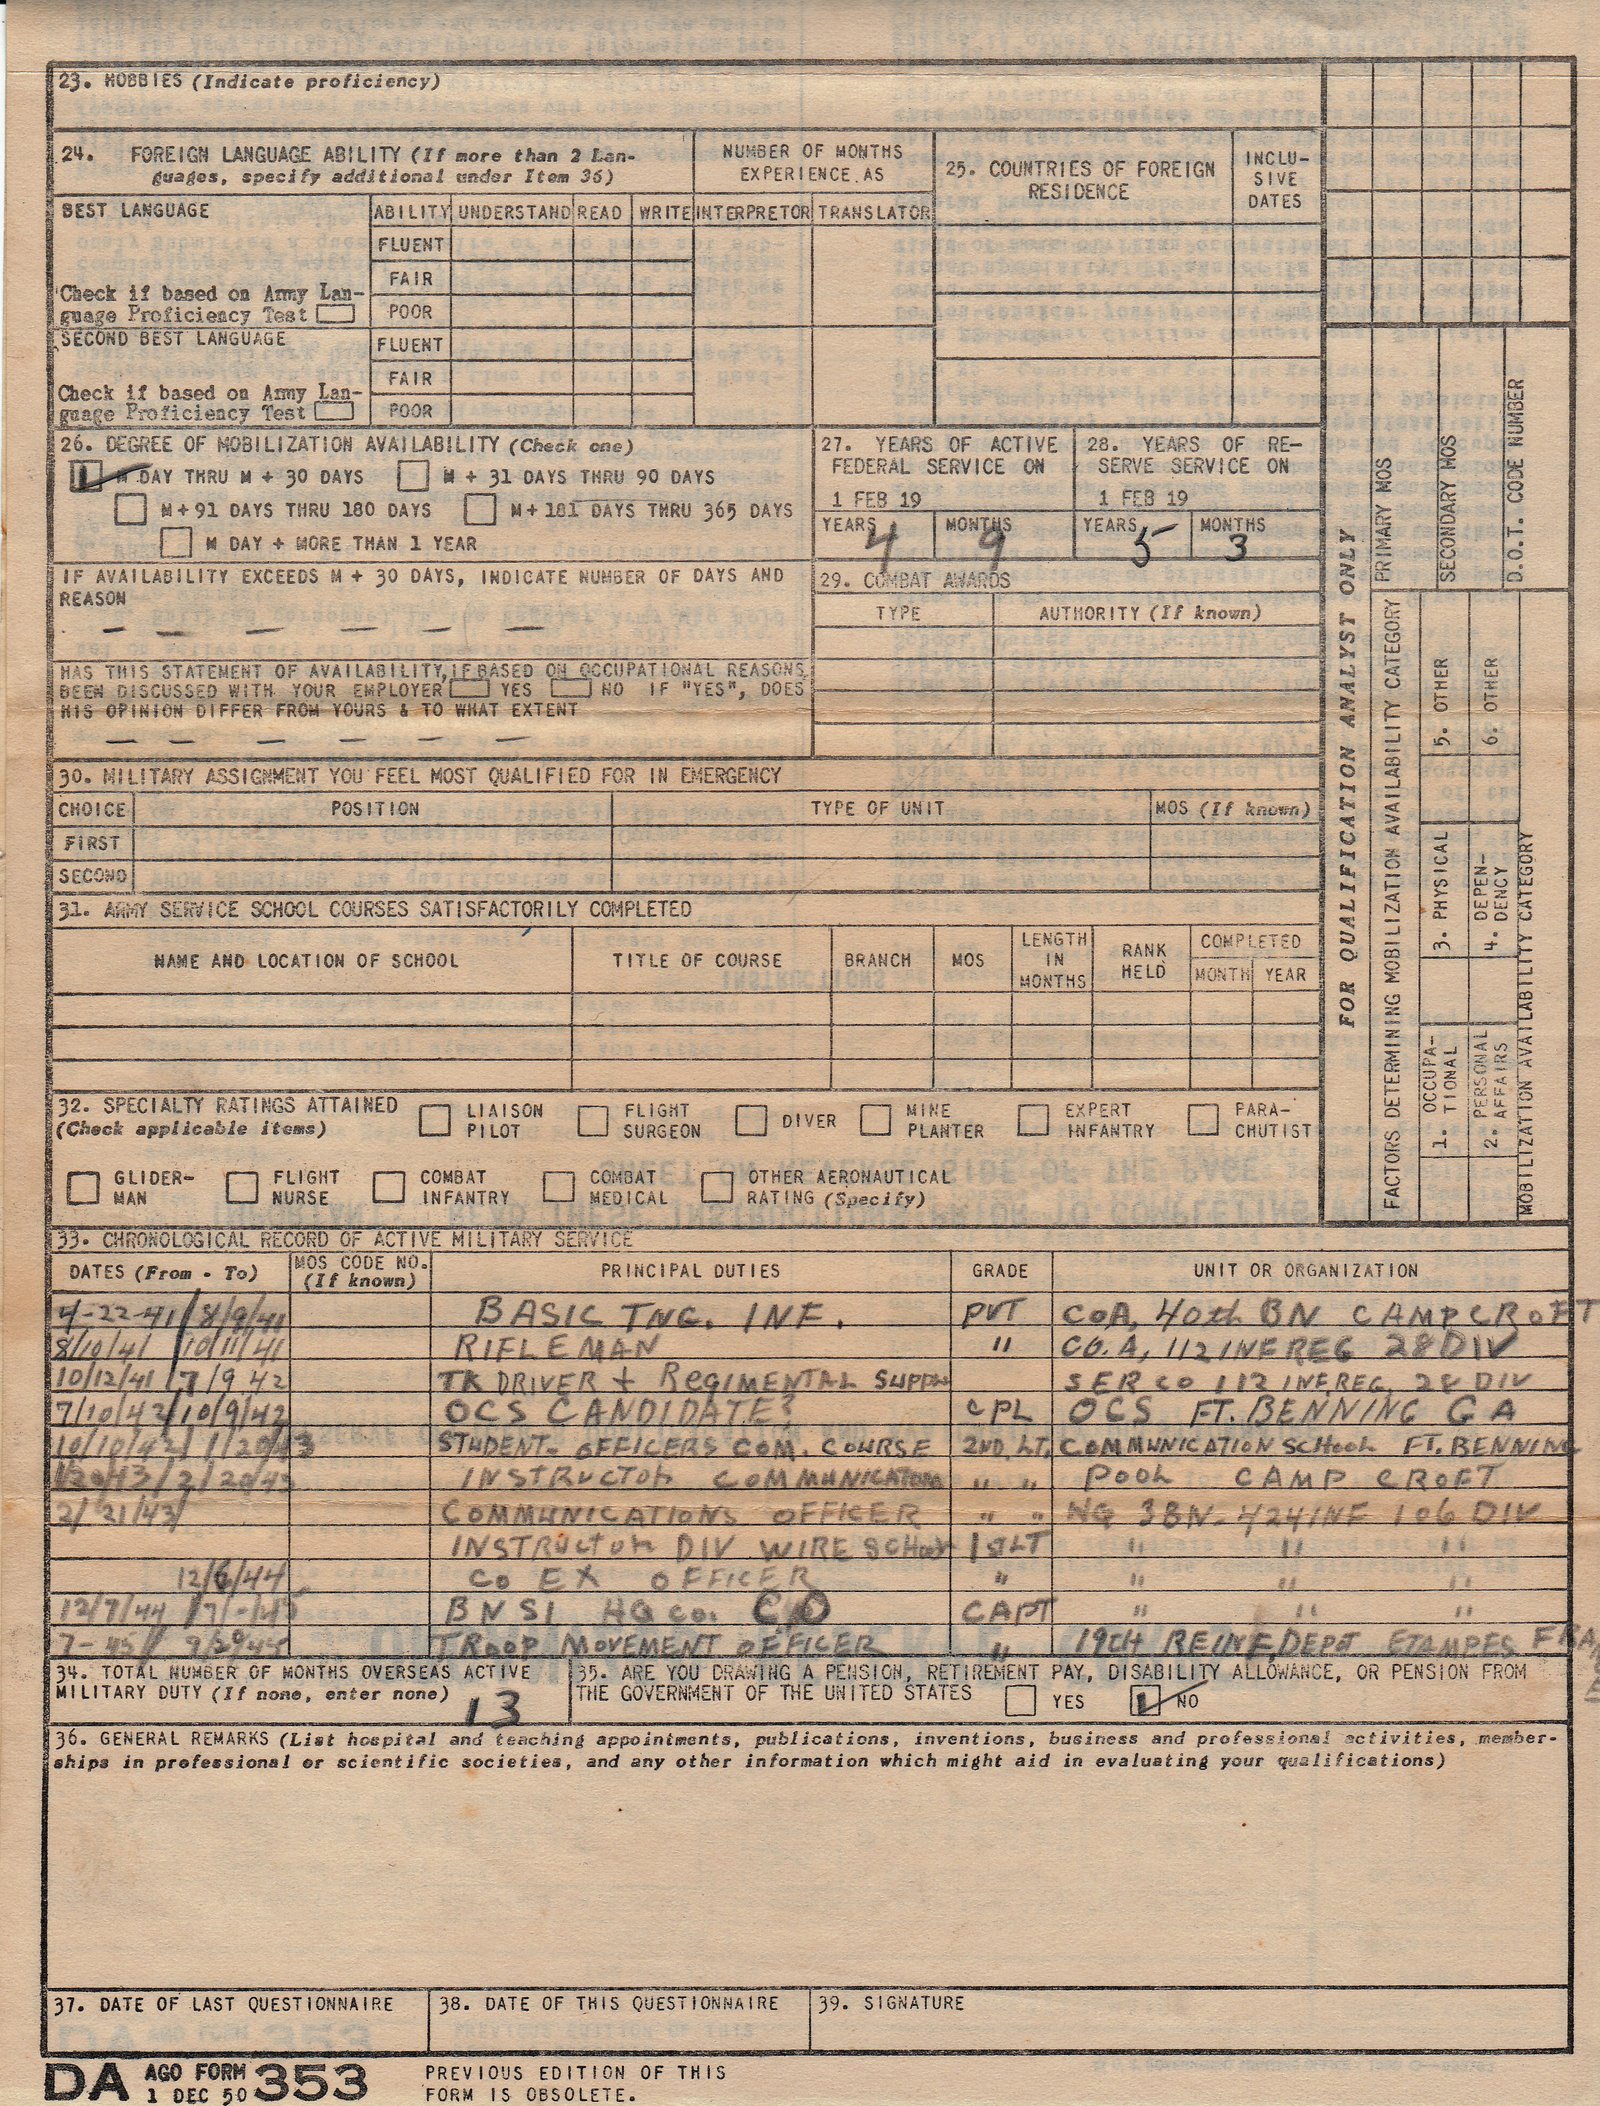 23. HOBBIES (Indicate proficiency)
24. FOREIGN LANGUAGE ABILITY (If more than 2 Lan-
guages, specify additional under Item 36)
NUMBER OF MONTHS
EXPERIENCE AS
25. COUNTRIES OF FOREIGN
RESIDENCE
INCLU-
SIVE
DATES
BEST LANGUAGE
ABILITY UNDERSTAND READ WRITE INTERPRETOR TRANSLATOR
FLUENT
FAIR
Check if based on Army Lan-
guage Proficiency Test
POOR
SECOND BEST LANGUAGE
FLUENT
FAIR
Check if based on Army Lan-
guage Proficiency Test
POOR
26. DEGREE OF MOBILIZATION AVAILABILITY (Check one)
M DAY THRU M + 30 DAYS M + 31 DAYS THRU 90 DAYS
M+91 DAYS THRU 180 DAYS M+181 DAYS THRU 365 DAYS
M DAY + MORE THAN 1 YEAR
27. YEARS OF ACTIVE
FEDERAL SERVICE ON
1 FEB 19
YEARS 4 MONTHS 9
28. YEARS OF RE-
SERVE SERVICE ON
1 FEB 19
YEARS 5 MONTHS 3
IF AVAILABILITY EXCEEDS M + 30 DAYS, INDICATE NUMBER OF DAYS AND
REASON
— — — — — —
HAS THIS STATEMENT OF AVAILABILITY, IF BASED ON OCCUPATIONAL REASONS,
BEEN DISCUSSED WITH YOUR EMPLOYER YES NO IF "YES", DOES
HIS OPINION DIFFER FROM YOURS & TO WHAT EXTENT
— — — — — —
29. COMBAT AWARDS
TYPE AUTHORITY (If known)
30. MILITARY ASSIGNMENT YOU FEEL MOST QUALIFIED FOR IN EMERGENCY
CHOICE POSITION TYPE OF UNIT MOS (If known)
FIRST
SECOND
31. ARMY SERVICE SCHOOL COURSES SATISFACTORILY COMPLETED
NAME AND LOCATION OF SCHOOL TITLE OF COURSE BRANCH MOS
LENGTH
IN
MONTHS
RANK
HELD
COMPLETED
MONTH YEAR
32. SPECIALTY RATINGS ATTAINED
(Check applicable items)
LIAISON
PILOT
FLIGHT
SURGEON
DIVER
MINE
PLANTER
EXPERT
INFANTRY
PARA-
CHUTIST
GLIDER-
MAN
FLIGHT
NURSE
COMBAT
INFANTRY
COMBAT
MEDICAL
OTHER AERONAUTICAL
RATING (Specify)
FOR QUALIFICATION ANALYST ONLY
PRIMARY MOS
SECONDARY MOS
D.O.T. CODE NUMBER
FACTORS DETERMINING MOBILIZATION AVAILABILITY CATEGORY
1. OCCUPA-
TIONAL
3. PHYSICAL
5. OTHER
2. PERSONAL
AFFAIRS
4. DEPEN-
DENCY
6. OTHER
MOBILIZATION AVAILABILITY CATEGORY
33. CHRONOLOGICAL RECORD OF ACTIVE MILITARY SERVICE
DATES (From - To) MOS CODE NO. (If known) PRINCIPAL DUTIES GRADE UNIT OR ORGANIZATION
4-22-41 / 8/9/41 BASIC TNG. INF. PVT CoA, 40th BN CAMP CROFT
8/10/41 10/11/41 RIFLEMAN " CO. A, 112 INF REG 28 DIV
10/12/41 7/9 42 TK DRIVER + REGIMENTAL SUPPLY SER CO 112 INF. REG. 28 DIV
7/10/42 / 10/9/42 OCS CANDIDATE CPL OCS FT. BENNING GA
10/10/42 / 1/20/43 STUDENT- OFFICERS COM. COURSE 2ND. LT. COMMUNICATION SCHOOL FT. BENNING
1/20/43 / 2/20/43 INSTRUCTOR COMMUNICATIONS " " POOL CAMP CROFT
2/21/43/ COMMUNICATIONS OFFICER " " HQ 3BN- 424 INF 106 DIV
INSTRUCTOR DIV WIRE SCHOOL 1st LT " " "
12/6/44 CO EX OFFICER " " " "
12/7/44 /7/-/45 BN S1 HQ Co. CO CAPT " " "
7-45/ 9/29/45 TROOP MOVEMENT OFFICER " 19th REINF. DEPOT ETAMPES FRA
34. TOTAL NUMBER OF MONTHS OVERSEAS ACTIVE
MILITARY DUTY (If none, enter none) 13
35. ARE YOU DRAWING A PENSION, RETIREMENT PAY, DISABILITY ALLOWANCE, OR PENSION FROM
THE GOVERNMENT OF THE UNITED STATES YES NO
36. GENERAL REMARKS (List hospital and teaching appointments, publications, inventions, business and professional activities, member-
ships in professional or scientific societies, and any other information which might aid in evaluating your qualifications)
37. DATE OF LAST QUESTIONNAIRE 38. DATE OF THIS QUESTIONNAIRE 39. SIGNATURE
DA AGO FORM 353
1 DEC 50
PREVIOUS EDITION OF THIS
FORM IS OBSOLETE.